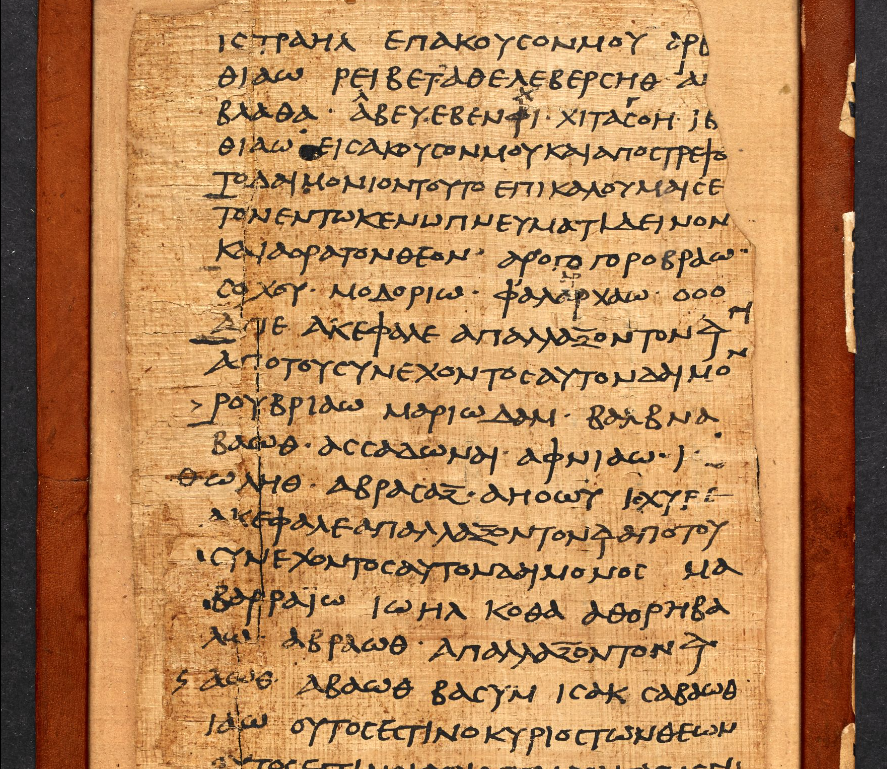 ΙϹΤΡΑΗΛ ΕΠΑΚΟΥϹΟΝΜΟΥ
ΘΙΑΩ ΡΕΙΒΕΤ ΑΘΕΛΕΒΕΡϹΗΘ
ΒΛΑΘΑ · ΑΒΕΥ·ΕΒΕΝΦΙ · ΧΙΤΑϹΟΗ · ΙΒ
ΘΙΑΩ · ΕΙϹΑΚΟΥϹΟΝΜΟΥΚΑΙΑΠΟϹΤΡΕΨΟ
ΤΟΔΑΙΜΟΝΙΟΝΤΟΥΤΟ ΕΠΙΚΑΛΟΥΜΑΙϹΕ
ΤΟΝΕΝΤΩΚΕΝΩΠΝΕΥΜΑΤΙΔΕΙΝΟΝ
ΚΑΙΑΟΡΑΤΟΝΘΕΟΝ · ΑΡΟΓΟΓΟΡΟΒΡΑΩ ·
ϹΟΧΟΥ · ΜΟΔΟΡΙΩ · ΦΑΛΑΡΧΑΩ · ΟΟΟ
ΑΠΕ ΑΚΕΦΑΛΕ ΑΠΑΛΛΑΞΟΝΤΟΝ
ΑΠΟΤΟΥϹΥΝΕΧΟΝΤΟϹΑΥΤΟΝΔΑΙΜΟΝ
ΡΟΥΒΡΙΑΩ ΜΑΡΙΩΔΑΜ · ΒΑΛΒΝΑ
ΒΑΩΘ · ΑϹϹΑΔΩΝΑΙ · ΑΦΝΙΑΩ · Ι ·
ΘΩΛΗΘ · ΑΒΡΑϹΑΞ · ΑΗΟΩΥ ΙϹΧΥΡΕ
ΑΚΕΦΑΛΕΑΠΑΛΛΑΞΟΝΤΟΝ ΑΠΟΤΟΥ
ϹΥΝΕΧΟΝΤΟϹΑΥΤΟΝΔΑΙΜΟΝΟϹ ΜΑ
ΒΑΡΡΑΙΩ ΙΩΗΛ ΚΟΘΑ ΑΘΟΡΗΒΑ
ΛΩ · ΑΒΡΑΩΘ · ΑΠΑΛΛΑΞΟΝΤΟΝ
ΑΩΘ ΑΒΑΩΘ ΒΑϹΥΜ ΙϹΑΚ ϹΑΒΑΩΘ
ΙΑΩ ΟΥΤΟϹΕϹΤΙΝΟΚΥΡΙΟϹΤΩΝΘΕΩΝ